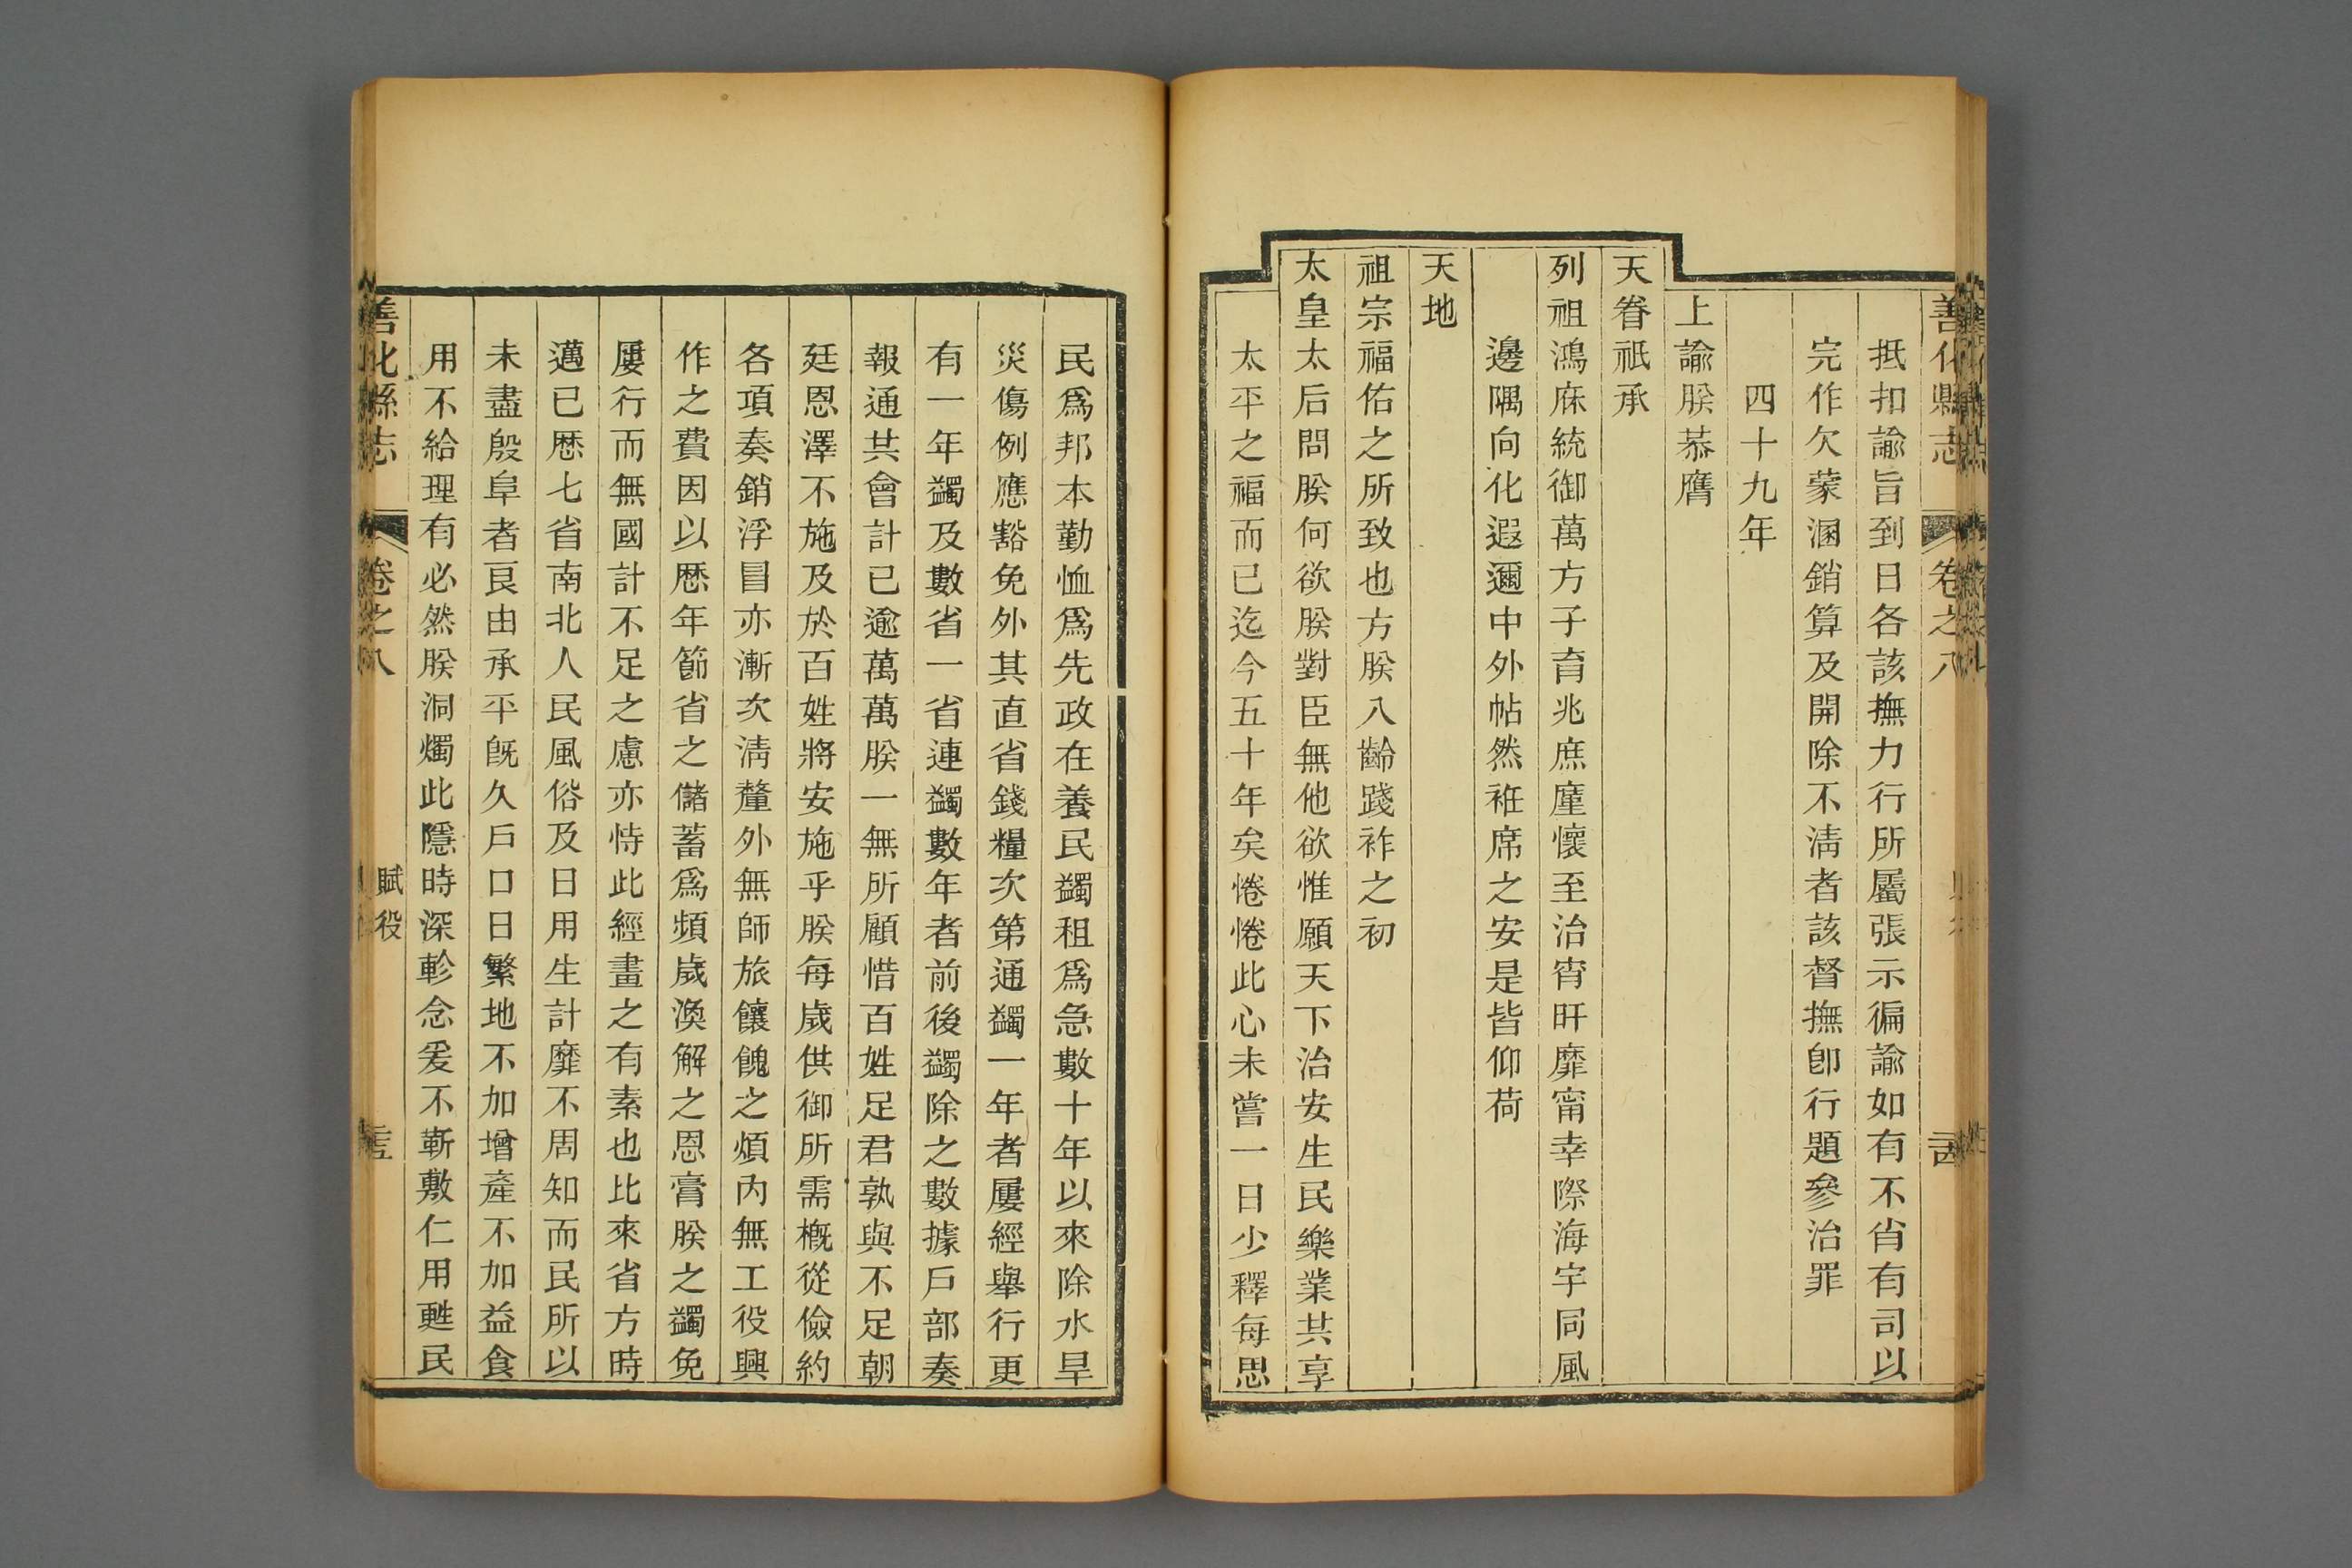 善化縣志 卷之八
抵扣諭旨到日各該撫力行所屬張示徧諭如有不肖有司以
完作欠蒙溷銷算及開除不淸者該督撫卽行題參治罪
四十九年
上諭朕恭膺
天眷祇承
列祖鴻庥統御萬方子育兆庶廑懷至治宵旰靡甯幸際海宇同風
邊隅向化遐邇中外帖然袵席之安是皆仰荷
天地
祖宗福佑之所致也方朕八齡踐祚之初
太皇太后問朕何欲朕對臣無他欲惟願天下治安生民樂業共享
太平之福而已迄今五十年矣惓惓此心未嘗一日少釋每思
民爲邦本勤恤爲先政在養民蠲租爲急數十年以來除水旱
災傷例應豁免外其直省錢糧次第通蠲一年者屢經舉行更
有一年蠲及數省一省連蠲數年者前後蠲除之數據戶部奏
報通共會計已逾萬萬朕一無所顧惜百姓足君孰與不足朝
廷恩澤不施及於百姓將安施乎朕每歲供御所需槪從儉約
各項奏銷浮冒亦漸次淸釐外無師旅饟餽之煩內無工役興
作之費因以歷年節省之儲蓄爲頻歲渙解之恩膏朕之蠲免
屢行而無國計不足之慮亦恃此經畫之有素也比來省方時
邁已歷七省南北人民風俗及日用生計靡不周知而民所以
未盡殷阜者良由承平旣久戶口日繁地不加增產不加益食
用不給理有必然朕洞燭此隱時深軫念爰不靳敷仁用甦民
善化縣志 卷之八 賦役